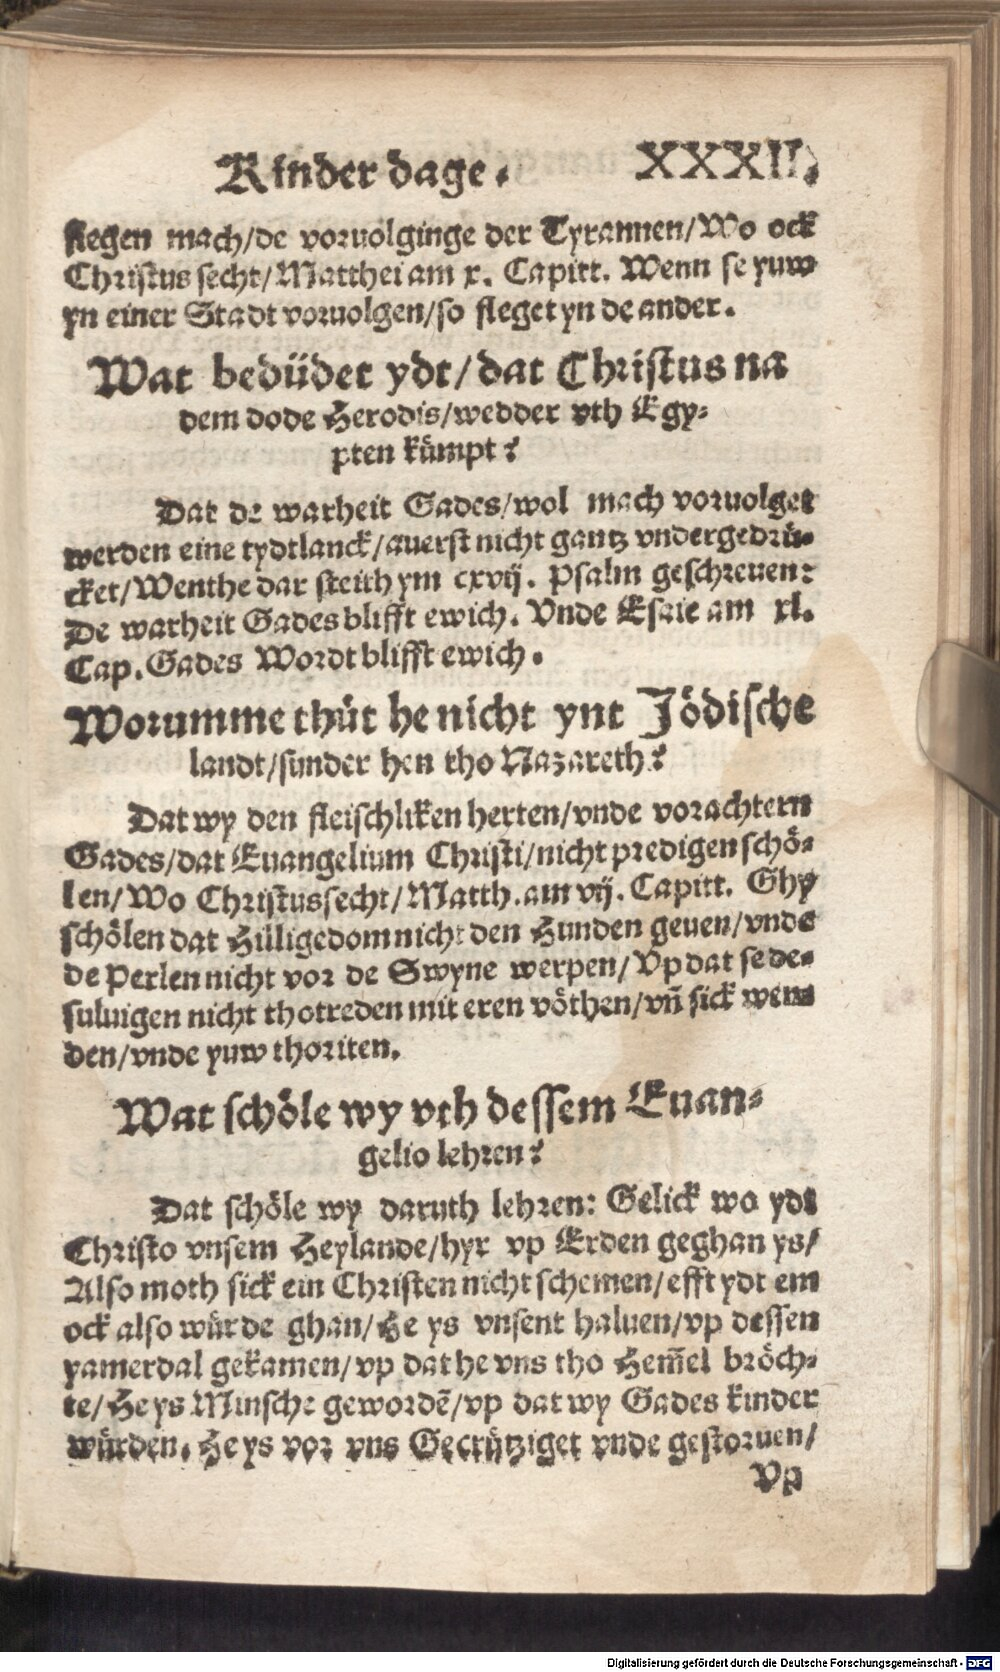 Kinder dage. XXXIII.
flegen mach/de voruolginge der Tyrannen/Wo ock
Christus secht/Matthei am x. Capitt. Wenn se yuw
yn einer Stadt voruolgen/so fleget yn de ander.
Wat bedüdet ydt/dat Christus na
dem dode Herodis/wedder vth Egy-
pten kümpt?
Dat de warheit Gades/wol mach voruolget
werden eine tydtlanck/auerst nicht gantz vndergedrü-
cket/Wenthe dar steith ym cxvij. Psalm geschreuen:
De warheit Gades blifft ewich. Vnde Esaie am xl.
Cap. Gades Wordt blifft ewich.
Worumme thüt he nicht ynt Jödische
landt/sunder hen tho Nazareth?
Dat wy den fleischliken herten/vnde vorachtern
Gades/dat Euangelium Christi/nicht predigen schö-
len/Wo Christus secht/Matth. am vij. Capitt. Ghy
schölen dat Hilligedom nicht den Hunden geuen/vnde
de Perlen nicht vor de Swyne werpen/Vp dat se de-
suluigen nicht thotreden mit eren vöthen/vñ sick wen-
den/vnde yuw thoriten.
Wat schöle wy vth dessem Euan-
gelio lehren?
Dat schöle wy daruth lehren: Gelick wo ydt
Christo vnsem Heylande/hyr vp Erden geghan ys/
Also moth sick ein Christen nicht schemen/efft ydt em
ock also würde ghan/He ys vnsent haluen/vp dessen
yamerdal gekamen/vp dat he vns tho Hem̃el bröch-
te/He ys Minsche gewordẽ/vp dat wy Gades kinder
würden. He ys vor vns Gecrütziget vnde gestoruen/
Vp
Digitalisierung gefördert durch die Deutsche Forschungsgemeinschaft - DFG